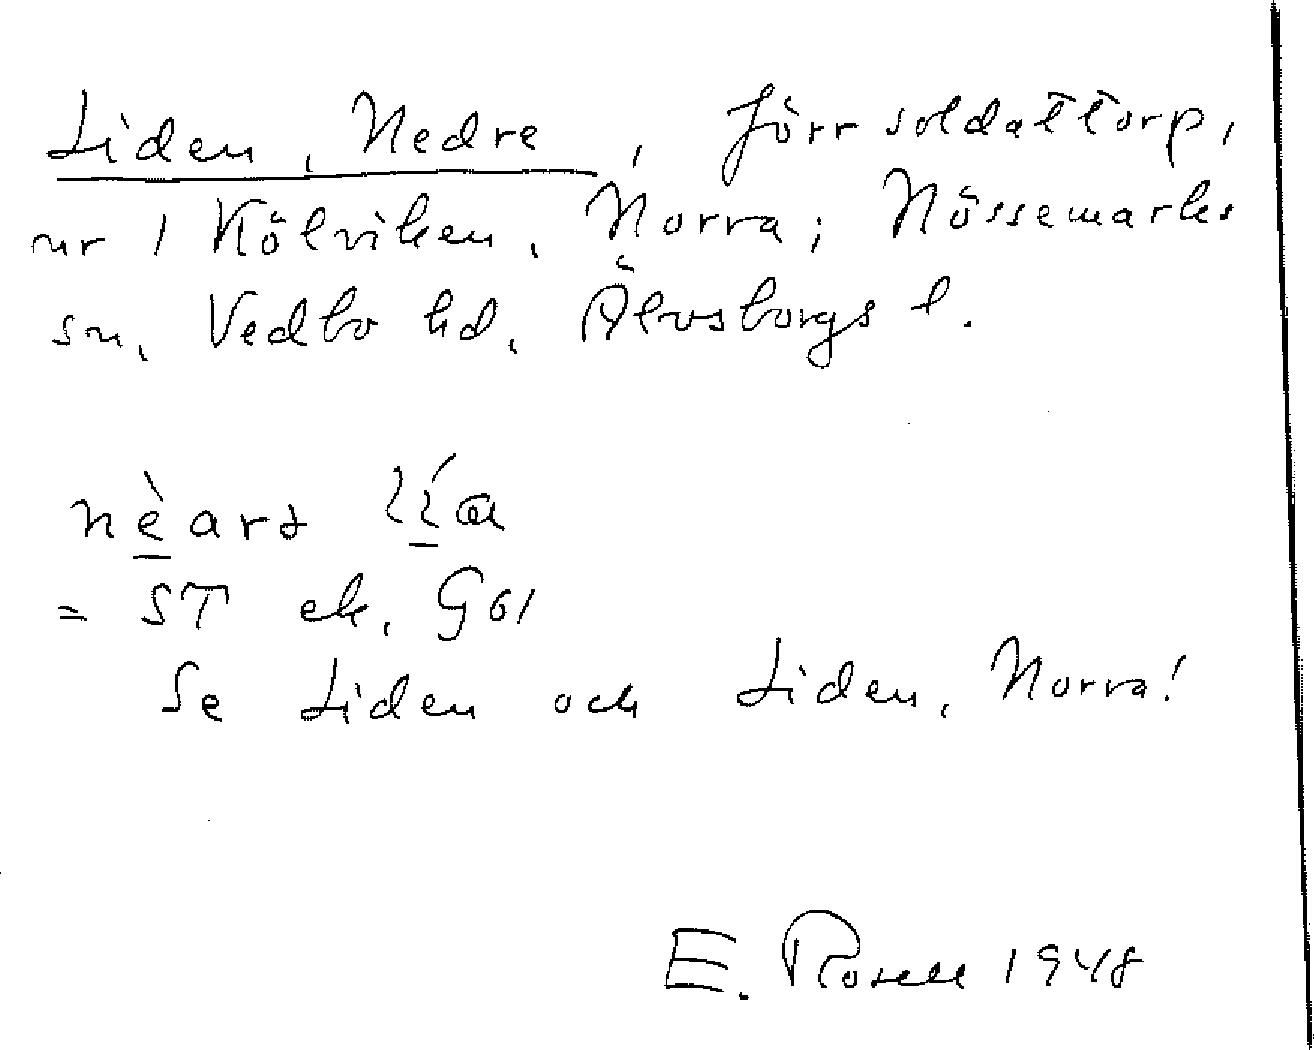 Liden, Nedre, förr soldattorp,
nr 1 Kölviken, Norra; Nössemarks
sn, Vedbo hd, Älvsborgs l.
= ST ek. G61
Se Liden och Liden, Norra!
E. Rosell 1948